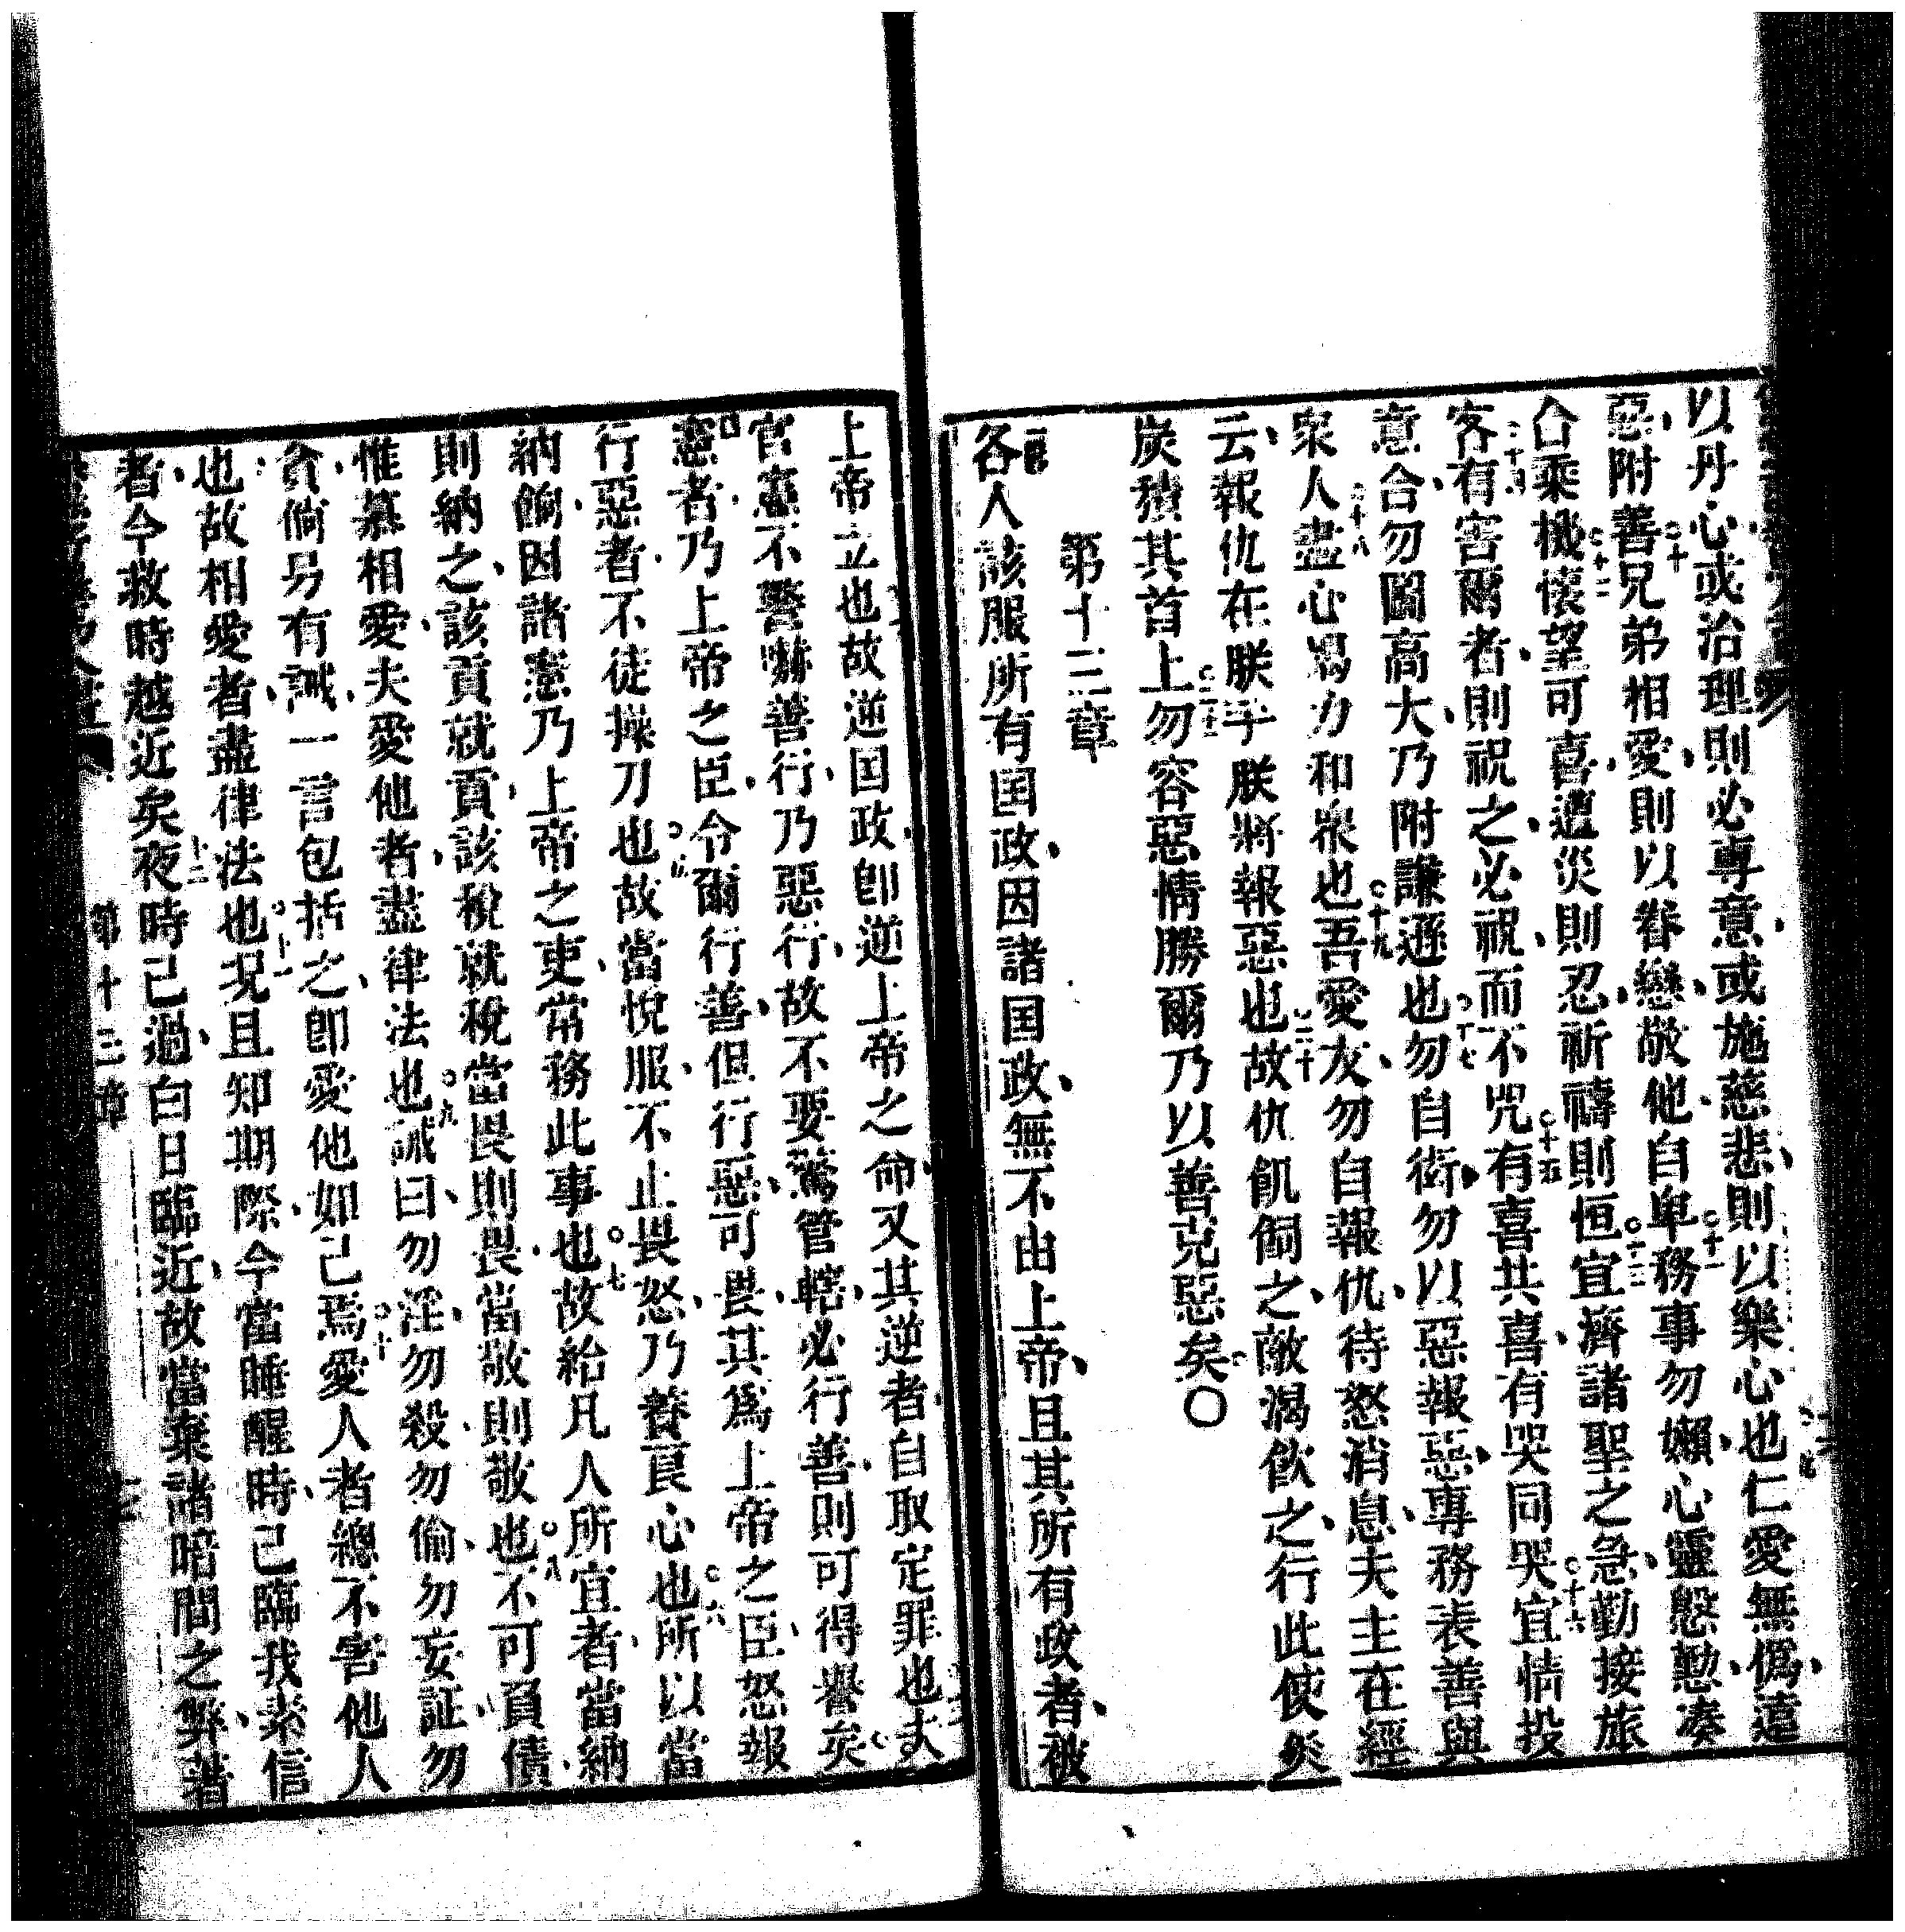 以丹心或治理則必專意或施慈悲則以樂心也仁愛無僞遠
惡附善兄弟相愛則以眷戀敬他自卑務事勿懶心靈慇懃凑
合乘機懷望可喜遭災則忍祈禱則恒宜濟諸聖之急勤接旅
客有害爾者則祝之必祝而不咒有喜共喜有哭同哭宜情投
意合勿圖高大乃附謙遜也勿自衒勿以惡報惡專務表善與
衆人盡心竭力和衆也吾愛友勿自報仇待怒消息夫主在經
云報仇在朕乎朕將報惡也故仇飢飼之敵渴飲之行此使炭
炭積其首上勿容惡情勝爾乃以善克惡矣〇
第十三章
各人該服所有囯政因諸囯政無不由上帝且其所有政者被
上帝立也故逆囯政卽逆上帝之命又其逆者自取定罪也夫
官憲不警嚇善行乃惡行故不要驚管轄必行善則可得譽矣
憲者乃上帝之臣令爾行善但行惡可畏其爲上帝之臣怒報
行惡者不徒操刀也故當悅服不止畏怒乃養良心也所以當
納餉因諸憲乃上帝之吏常務此事也故給凡人所宜者當納
則納之該貢就貢該稅就稅當畏則畏當敬則敬也不可負債
惟慕相愛夫愛他者盡律法也誡曰勿淫勿殺勿偷勿妄証勿
貪倘另有誡一言包括之卽愛他如己焉愛人者總不害他人
也故相愛者盡律法也况且知期際今當睡醒時已臨我素信
者今救時越近矣夜時已過白日臨近故當棄諸暗間之弊著
第十三章